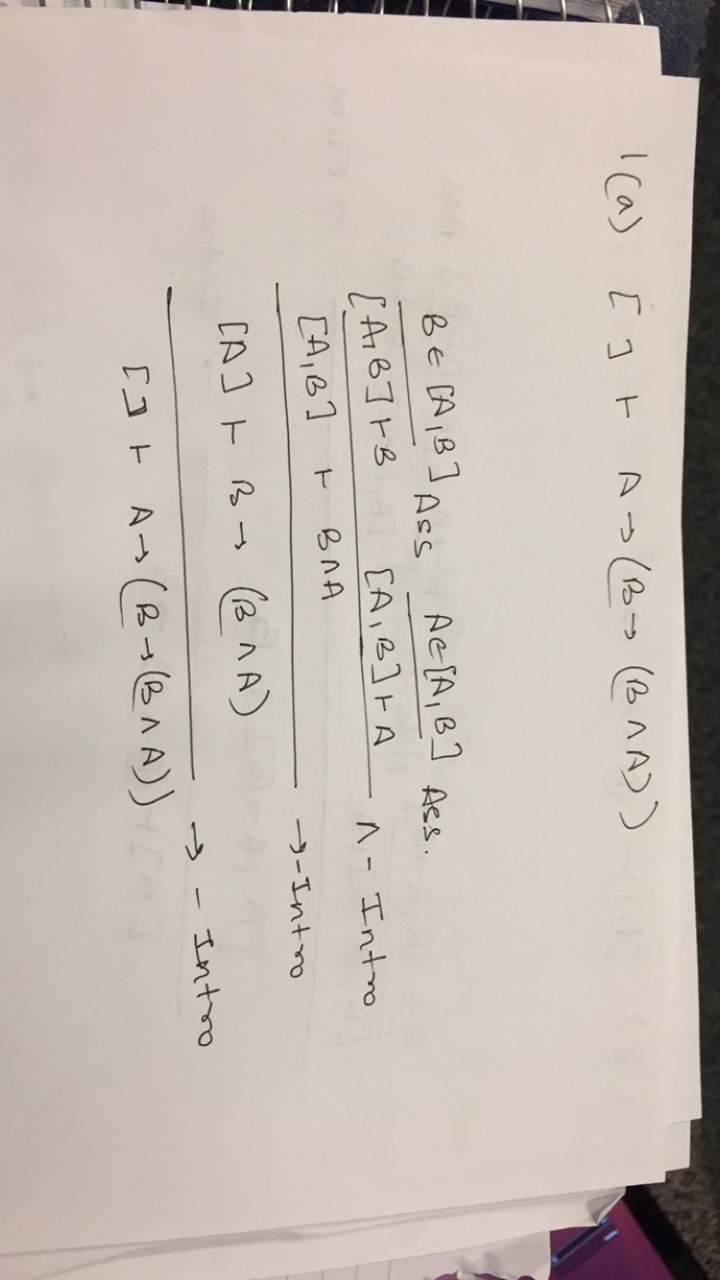 1(a) [ ] ⊢ A → (B → (B ∧ A))
B ∈ [A,B] Ass A ∈ [A,B] Ass.
[A,B] ⊢ B [A,B] ⊢ A ∧ - Intro
[A,B] ⊢ B ∧ A
→ - Intro
[A] ⊢ B → (B ∧ A)
→ - Intro
[ ] ⊢ A → (B → (B ∧ A))